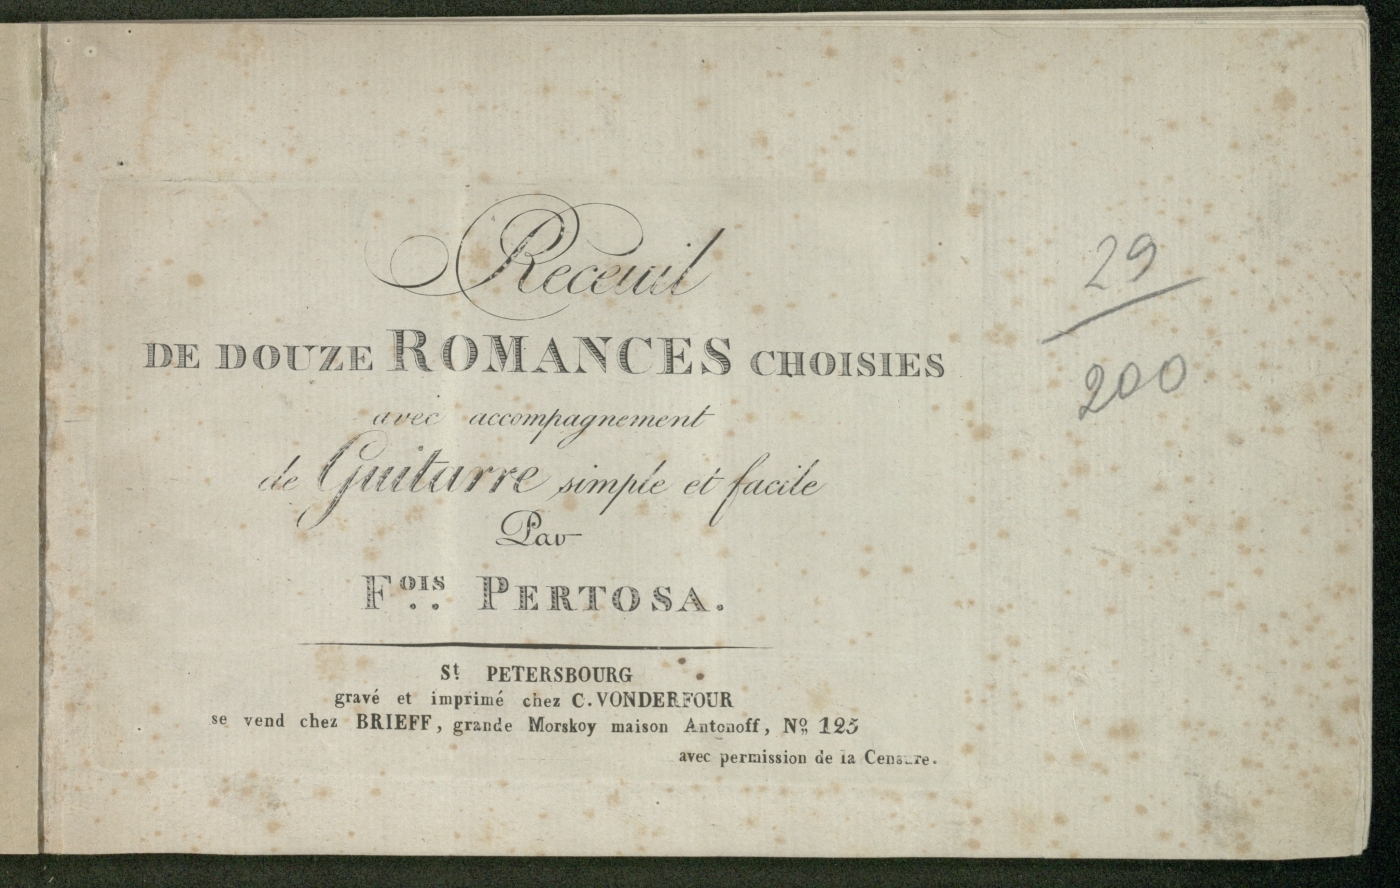 Receuil
DE DOUZE ROMANCES CHOISIES
avec accompagnement
de Guitarre simple et facile
Par
Fois.. PERTOSA.
St PETERSBOURG
gravé et imprimé chez C. VONDERFOUR
se vend chez BRIEFF, grande Morskoy maison Antonoff, No 125
avec permission de la Censure.
29
200